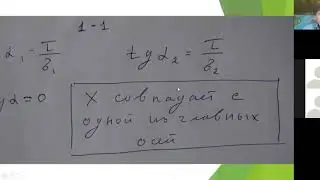 1-1
α₁ = τ/σ₁
tg α₂ = τ/σ₂
gα = 0
X совпадает с
одной из главных
осей